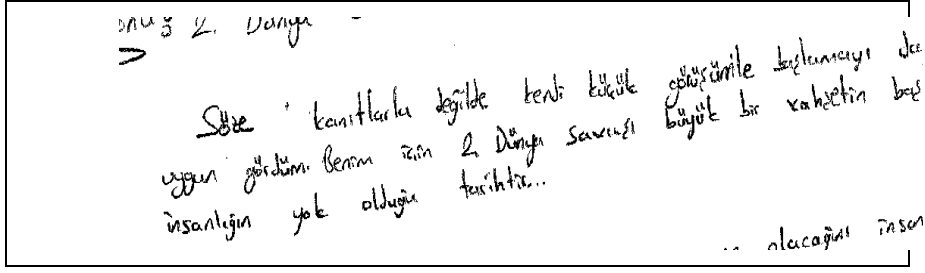 2. Dünya
Söze kanıtlarla değilde kendi küçük görüşümle başlamayı da
uygun gördüm. Benim için 2. Dünya savaşı büyük bir vahşetin baş
insanlığın yok olduğu tarihtir...
olacağını insan